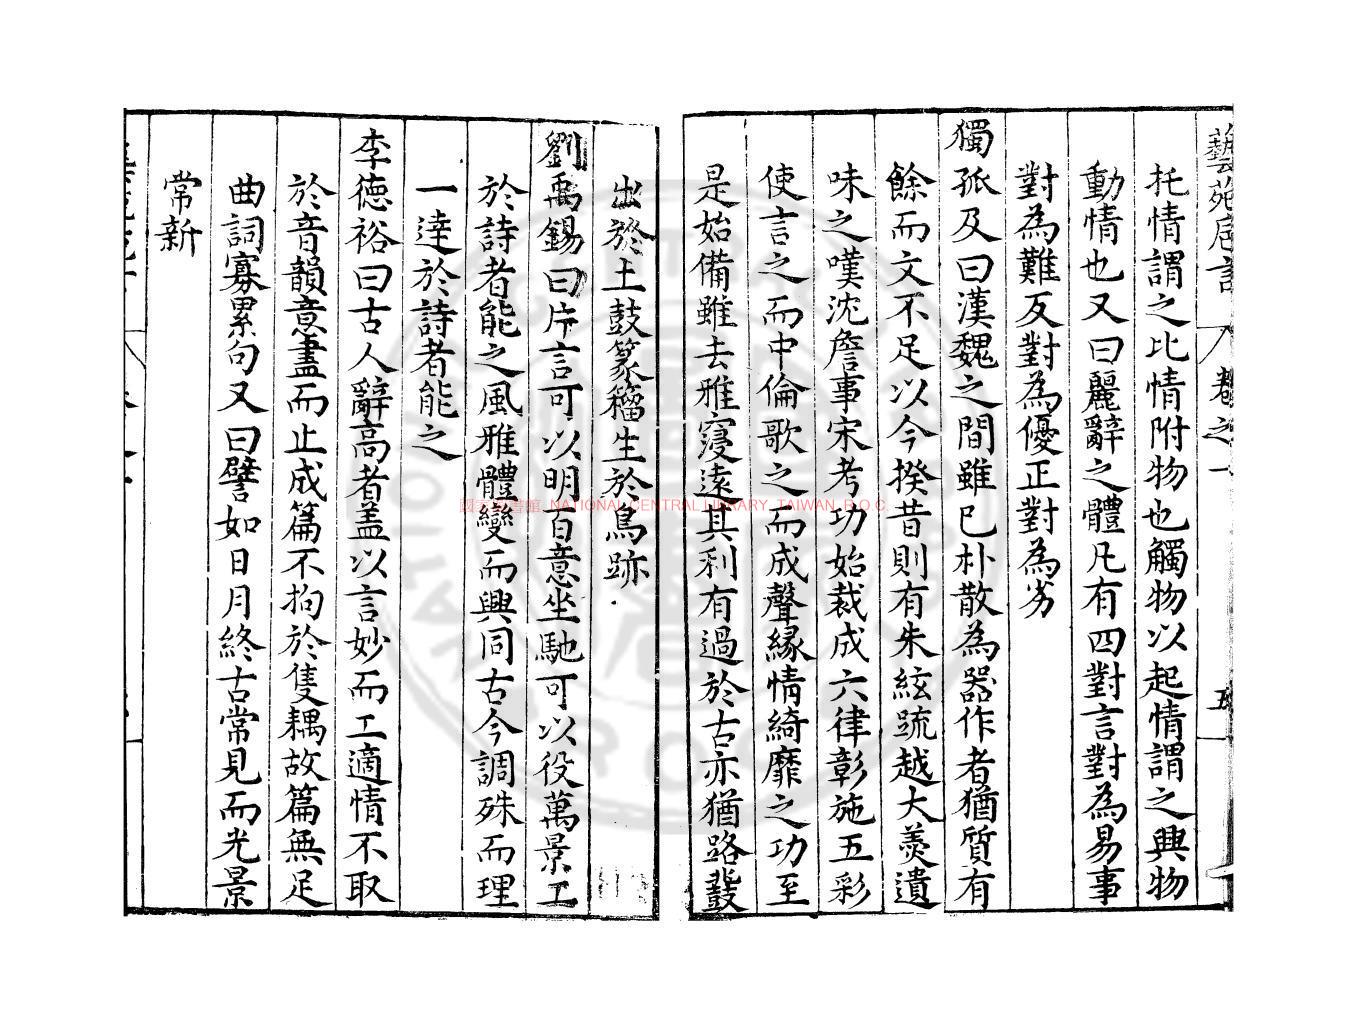 藝苑卮言 卷之一 五
托情謂之比情附物也觸物以起情謂之興物
動情也又曰麗辭之體凡有四對言對為易事
對為難反對為優正對為劣
獨孤及曰漢魏之間雖已朴散為器作者猶質有
餘而文不足以今揆昔則有朱絃疏越大羹遺
味之嘆沈詹事宋考功始裁成六律彰施五彩
使言之而中倫歌之而成聲緣情綺靡之功至
是始備雖去雅寖遠其利有過於古亦猶路鼗
出於土鼓篆籀生於鳥跡
劉禹錫曰片言可以明百意坐馳可以役萬景工
於詩者能之風雅體變而興同古今調殊而理
一達於詩者能之
李德裕曰古人辭高者盖以言妙而工適情不取
於音韻意盡而止成篇不拘於隻耦故篇無足
曲詞寡累句又曰譬如日月終古常見而光景
常新
國家圖書館 NATIONAL CENTRAL LIBRARY, TAIWAN, R.O.C.